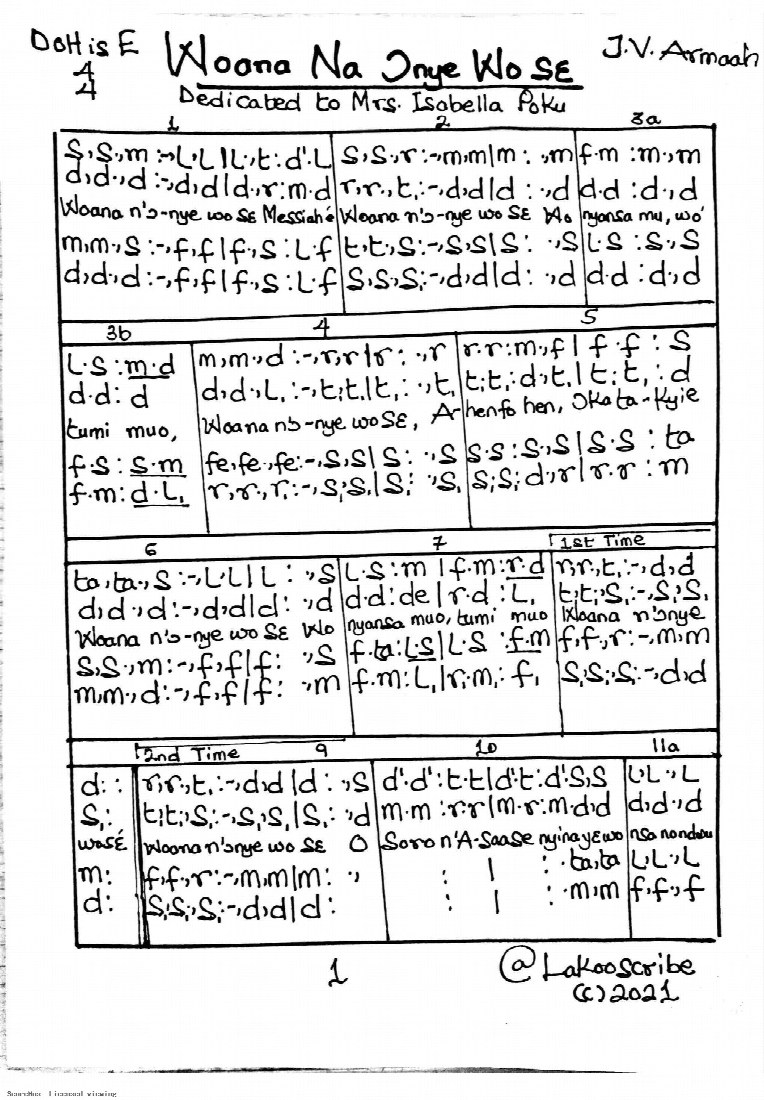 DoH is E
4
4
Woana Na Ɔnye Wo Sɛ
J.V. Armaah
Dedicated to Mrs. Isabella Poku
1 2 3a
S,S,m :-,L,L|L,t:d'.L S,S,r:-,m,m|m: .,m f.m :m.,m
d,d.,d :-,d,d|d,r:m.d r,r.,t,:-,d,d|d: .,d d.d :d.,d
Woana n'ɔ-nye wo Sɛ Messiah é Woana n'ɔ-nye wo Sɛ Wo nyansa mu, wo'
m,m.,S:-,f,f|f.,S:L.f t,t,,S,:-,S,S|S: .,S L.S :S.,S
d,d.,d:-,f,f|f.,S:L.f S,S,,S,:-,d,d|d: .,d d.d :d.,d
3b 4 5
L.S :m.d m,m.,d:-,r,r|r: .,r r.r:m.,f| f.f : S
d.d: d d,d.,L,:-,t,t,|t,: .,t, t,.t,:d.,t,|t,.t,:d
tumi muo, Woana n'ɔ-nye wo Sɛ, A-henfo hen, Okata-Kyie
f.S : S.m fe,fe.,fe:-,S,S|S: .,S S.S:S.,S|S.S : ta
f.m: d.L, r,r.,r,:-,S,S,|S,: .,S, S,S,:d.,r|r.r : m
6 7 1st Time
ta,ta.,S:-,L,L|L: .,S L.S:m|f.m:r.d r,r.,t,:-,d,d
d,d.,d:-,d,d|d: .,d d.d:de|r.d:L, t,t,,S,:-,S,S,
Woana n'ɔ-nye wo Sɛ Wo nyansa muo, tumi muo Woana n'ɔnye
S,S.,m:-,f,f|f: .,S f.ta:L.S|L.S:f.m f,f.,r:-,m,m
m,m.,d:-,f,f|f: .,m f.m:L,|r,.m,: f, S,S,,S,:-,d,d
2nd Time 9 10 11a
d: : r,r.,t,:-,d,d|d: .,S d'.d':t.t|d'.t:d'.S,S L,L.,L
S,: t,t,,S,:-,S,S,|S,: .,d m.m:r.r|m.r:m.d,d d,d.,d
wosé Woana n'ɔnye wo Sɛ O Soro n'A-Saase nyina yɛ wo nsa nondwu
m: f,f.,r:-,m,m|m: ., : | : .ta,ta L,L.,L
d: S,S,,S,:-,d,d|d: : | : .m,m f,f.,f
1
@Lakooscribe
(C) 2021